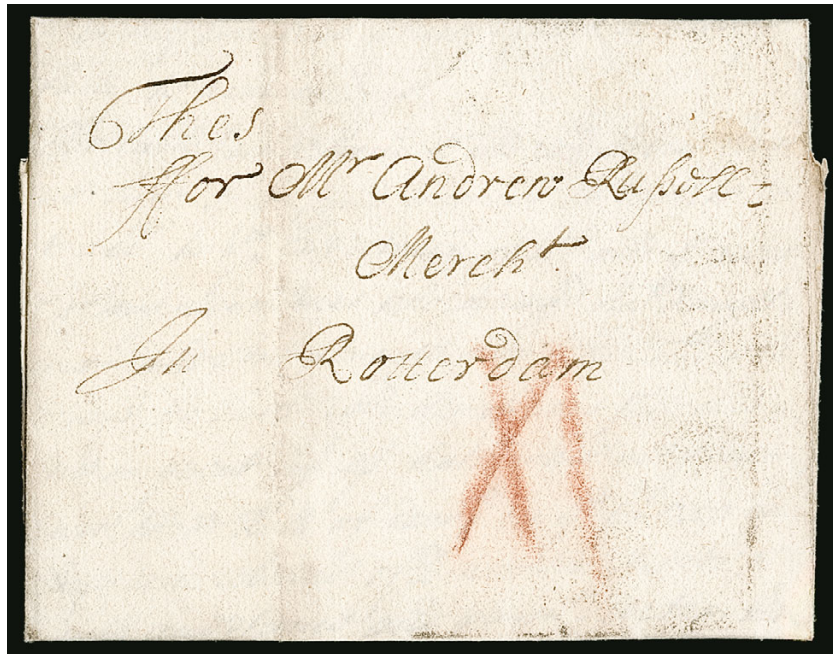 Thes
ffor Mr Andrew Russell
Mercht.
In Rotterdam
XI